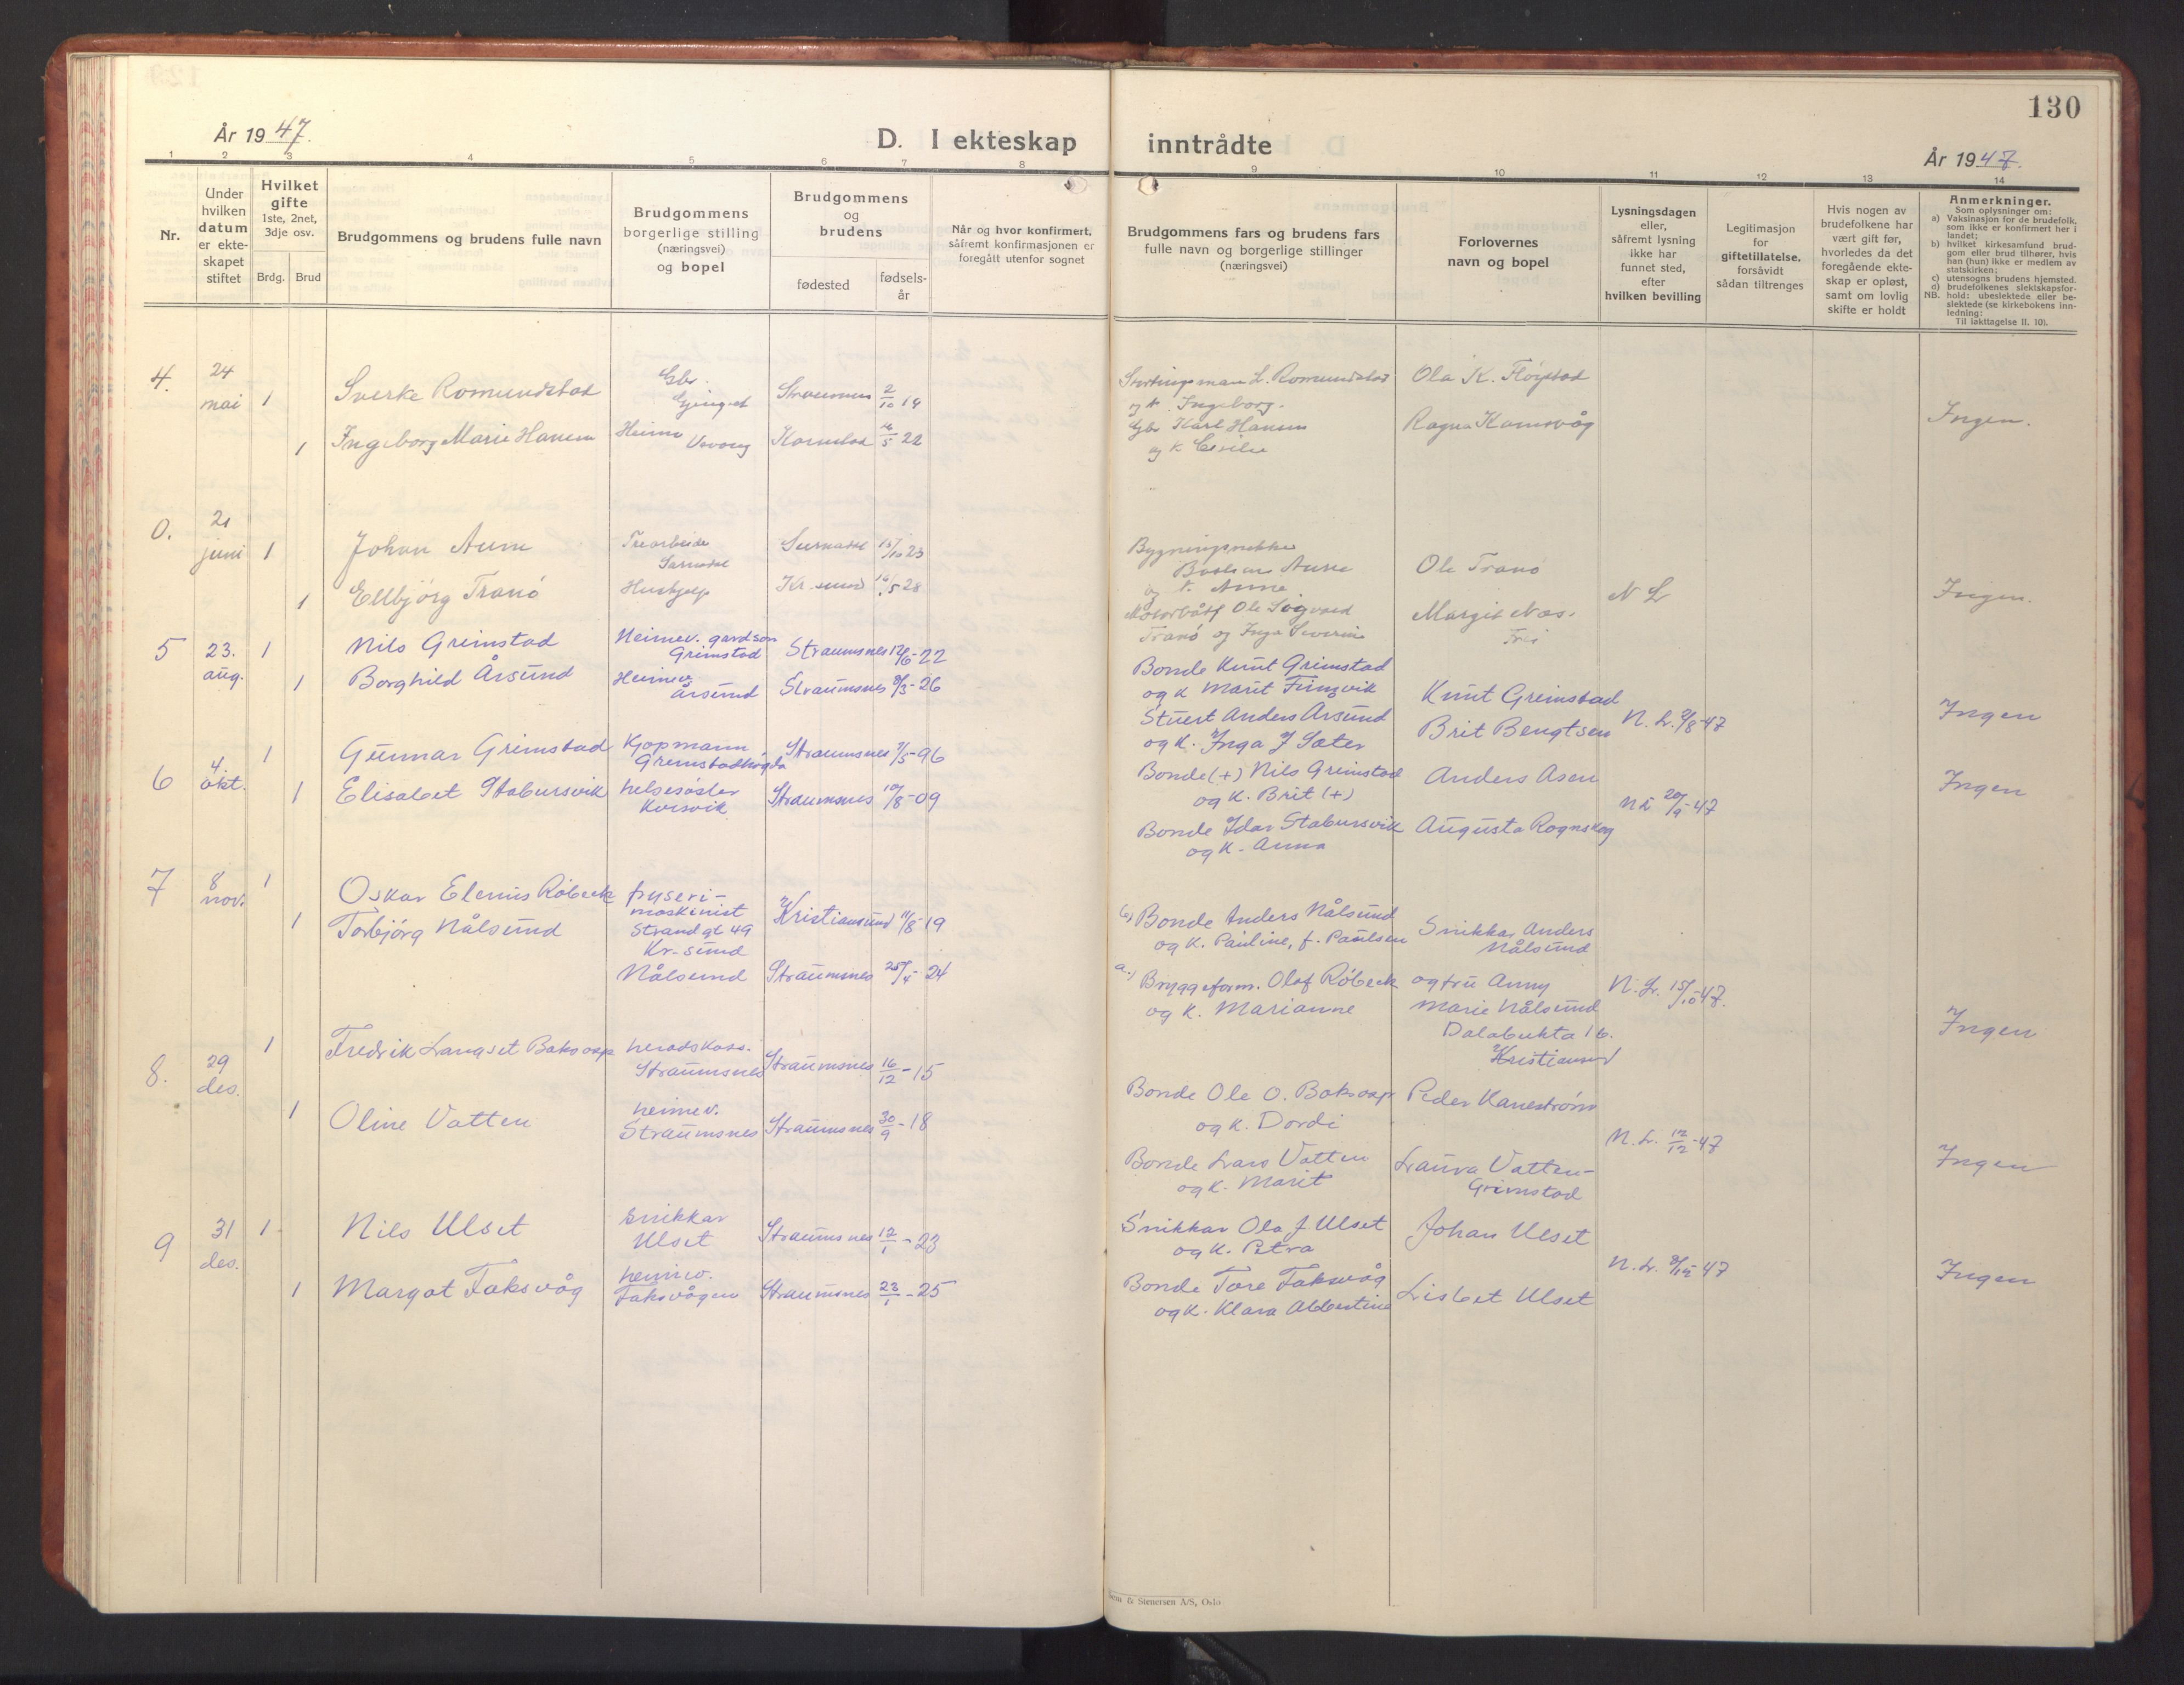 130
År 1947.
D. I ekteskap
inntrådte
År 1947.
1 2 3 4 5 6 7 8
9 10 11 12 13 14
Nr.
Under
hvilken
datum
er ekte-
skapet
stiftet
Hvilket
gifte
1ste, 2net,
3dje osv.
Brdg. Brud
Brudgommens og brudens fulle navn
Brudgommens
borgerlige stilling
(næringsvei)
og bopel
Brudgommens
og
brudens
fødested
fødsels-
år
Når og hvor konfirmert,
såfremt konfirmasjonen er
foregått utenfor sognet
Brudgommens fars og brudens fars
fulle navn og borgerlige stillinger
(næringsvei)
Forlovernes
navn og bopel
Lysningsdagen
eller,
såfremt lysning
ikke har
funnet sted,
efter
hvilken bevilling
Legitimasjon
for
giftetillatelse,
forsåvidt
sådan tiltrenges
Hvis nogen av
brudefolkene har
vært gift før,
hvorledes da det
foregående ekte-
skap er opløst,
samt om lovlig
skifte er holdt
Anmerkninger.
Som oplysninger om:
a) Vaksinasjon for de brudefolk,
som ikke er konfirmert her i
landet;
b) hvilket kirkesamfund brud-
gom eller brud tilhører, hvis
han (hun) ikke er medlem av
statskirken;
c) utensogns brudens hjemsted.
d) brudefolkenes slektskapsfor-
NB. hold: ubeslektede eller be-
slektede (se kirkebokens inn-
ledning:
Til iakttagelse II. 10).
4. 24 mai 1 Sverke Romundstad Gbr. Straumsnes 2/10 14
1 Ingeborg Marie Hansen Heime Kornstad 22
Stortingsmann L. Romundstad
og k. Ingeborg.
Gbr Kåre Hansen
og k
Ola K. Fløystad
Ragna
Ingen.
0. 21 juni 1 Johan Aune Trearbeider Surnadal 15/10 23
1 Ellbjørg Tranø Hushjelp Kr.sund 28
Aune
og k. Anne
Ole Sigvard
Tranø og Inga Severine
Ole Tranø
Margit Næs.
Frei
N L
Ingen.
5 23. aug. 1 Nils Grimstad Heimev. gardson
Grimstad Straumsnes 12/6-22
1 Borghild Årsund Heimev.
Årsund Straumsnes 9/3-26
Bonde Knut Grimstad
og k Marit
Stuert Anders Årsund
og k. Inga J Sæter
Knut Grimstad
Brit Bengtsen
N. L. 9/8-47
Ingen
6 4. okt. 1 Gunnar Grimstad Kjøpmann
Straumsnes 7/5-96
1 Elisabet Stabursvik helsesøster
Korsvik Straumsnes 10/8-09
Bonde (+) Nils Grimstad
og k. Brit (+)
Bonde Idar Stabursvik
og k. Anna
Anders Asen
Augusta Rognskog
N L 20/9-47
Ingen
7 8 nov. 1 Oskar Elenius Røbeck fryseri-
maskinist
Strandgt 49
Kr-sund
Kristiansund 11/8-19
1 Torbjørg Nålsund
Nålsund Straumsnes 25/4-24
b) Bonde Anders Nålsund
og k. Pauline, f. Paulsen
a.) Bryggeform. Olaf Røbeck
og k. Marianne
Snikkar Anders
Nålsund
og fru Anny
Marie Nålsund
Dalabukta 16.
Kristiansund
N. L. 15/10-47.
Ingen
8. 29 des. 1 Fredrik Langset Baksaap heradskass.
Straumsnes Straumsnes 16/12-15
1 Oline Vatten heimev.
Straumsnes Straumsnes 30/9-18
Bonde Ole O. Bakasap
og k. Dordi
Bonde Lars Vatten
og k. Marit
Peder Kanestrøm
Laura Vatten-
Grimstad
N. L. 12/12-47
Ingen
9 31 des. 1 Nils Ulset Snikkar
Ulset Straumsnes 12/1-23
1 Margot Taksvåg heimev.
Taksvågen Straumsnes 23/1-25
Snikkar Ola J Ulset
og k. Petra
Bonde Tore Taksvåg
og k. Klara Albertine
Johan Ulset
Lisbet Ulset
N. L. 9/12 47
Ingen
& Stenersen A/S, Oslo